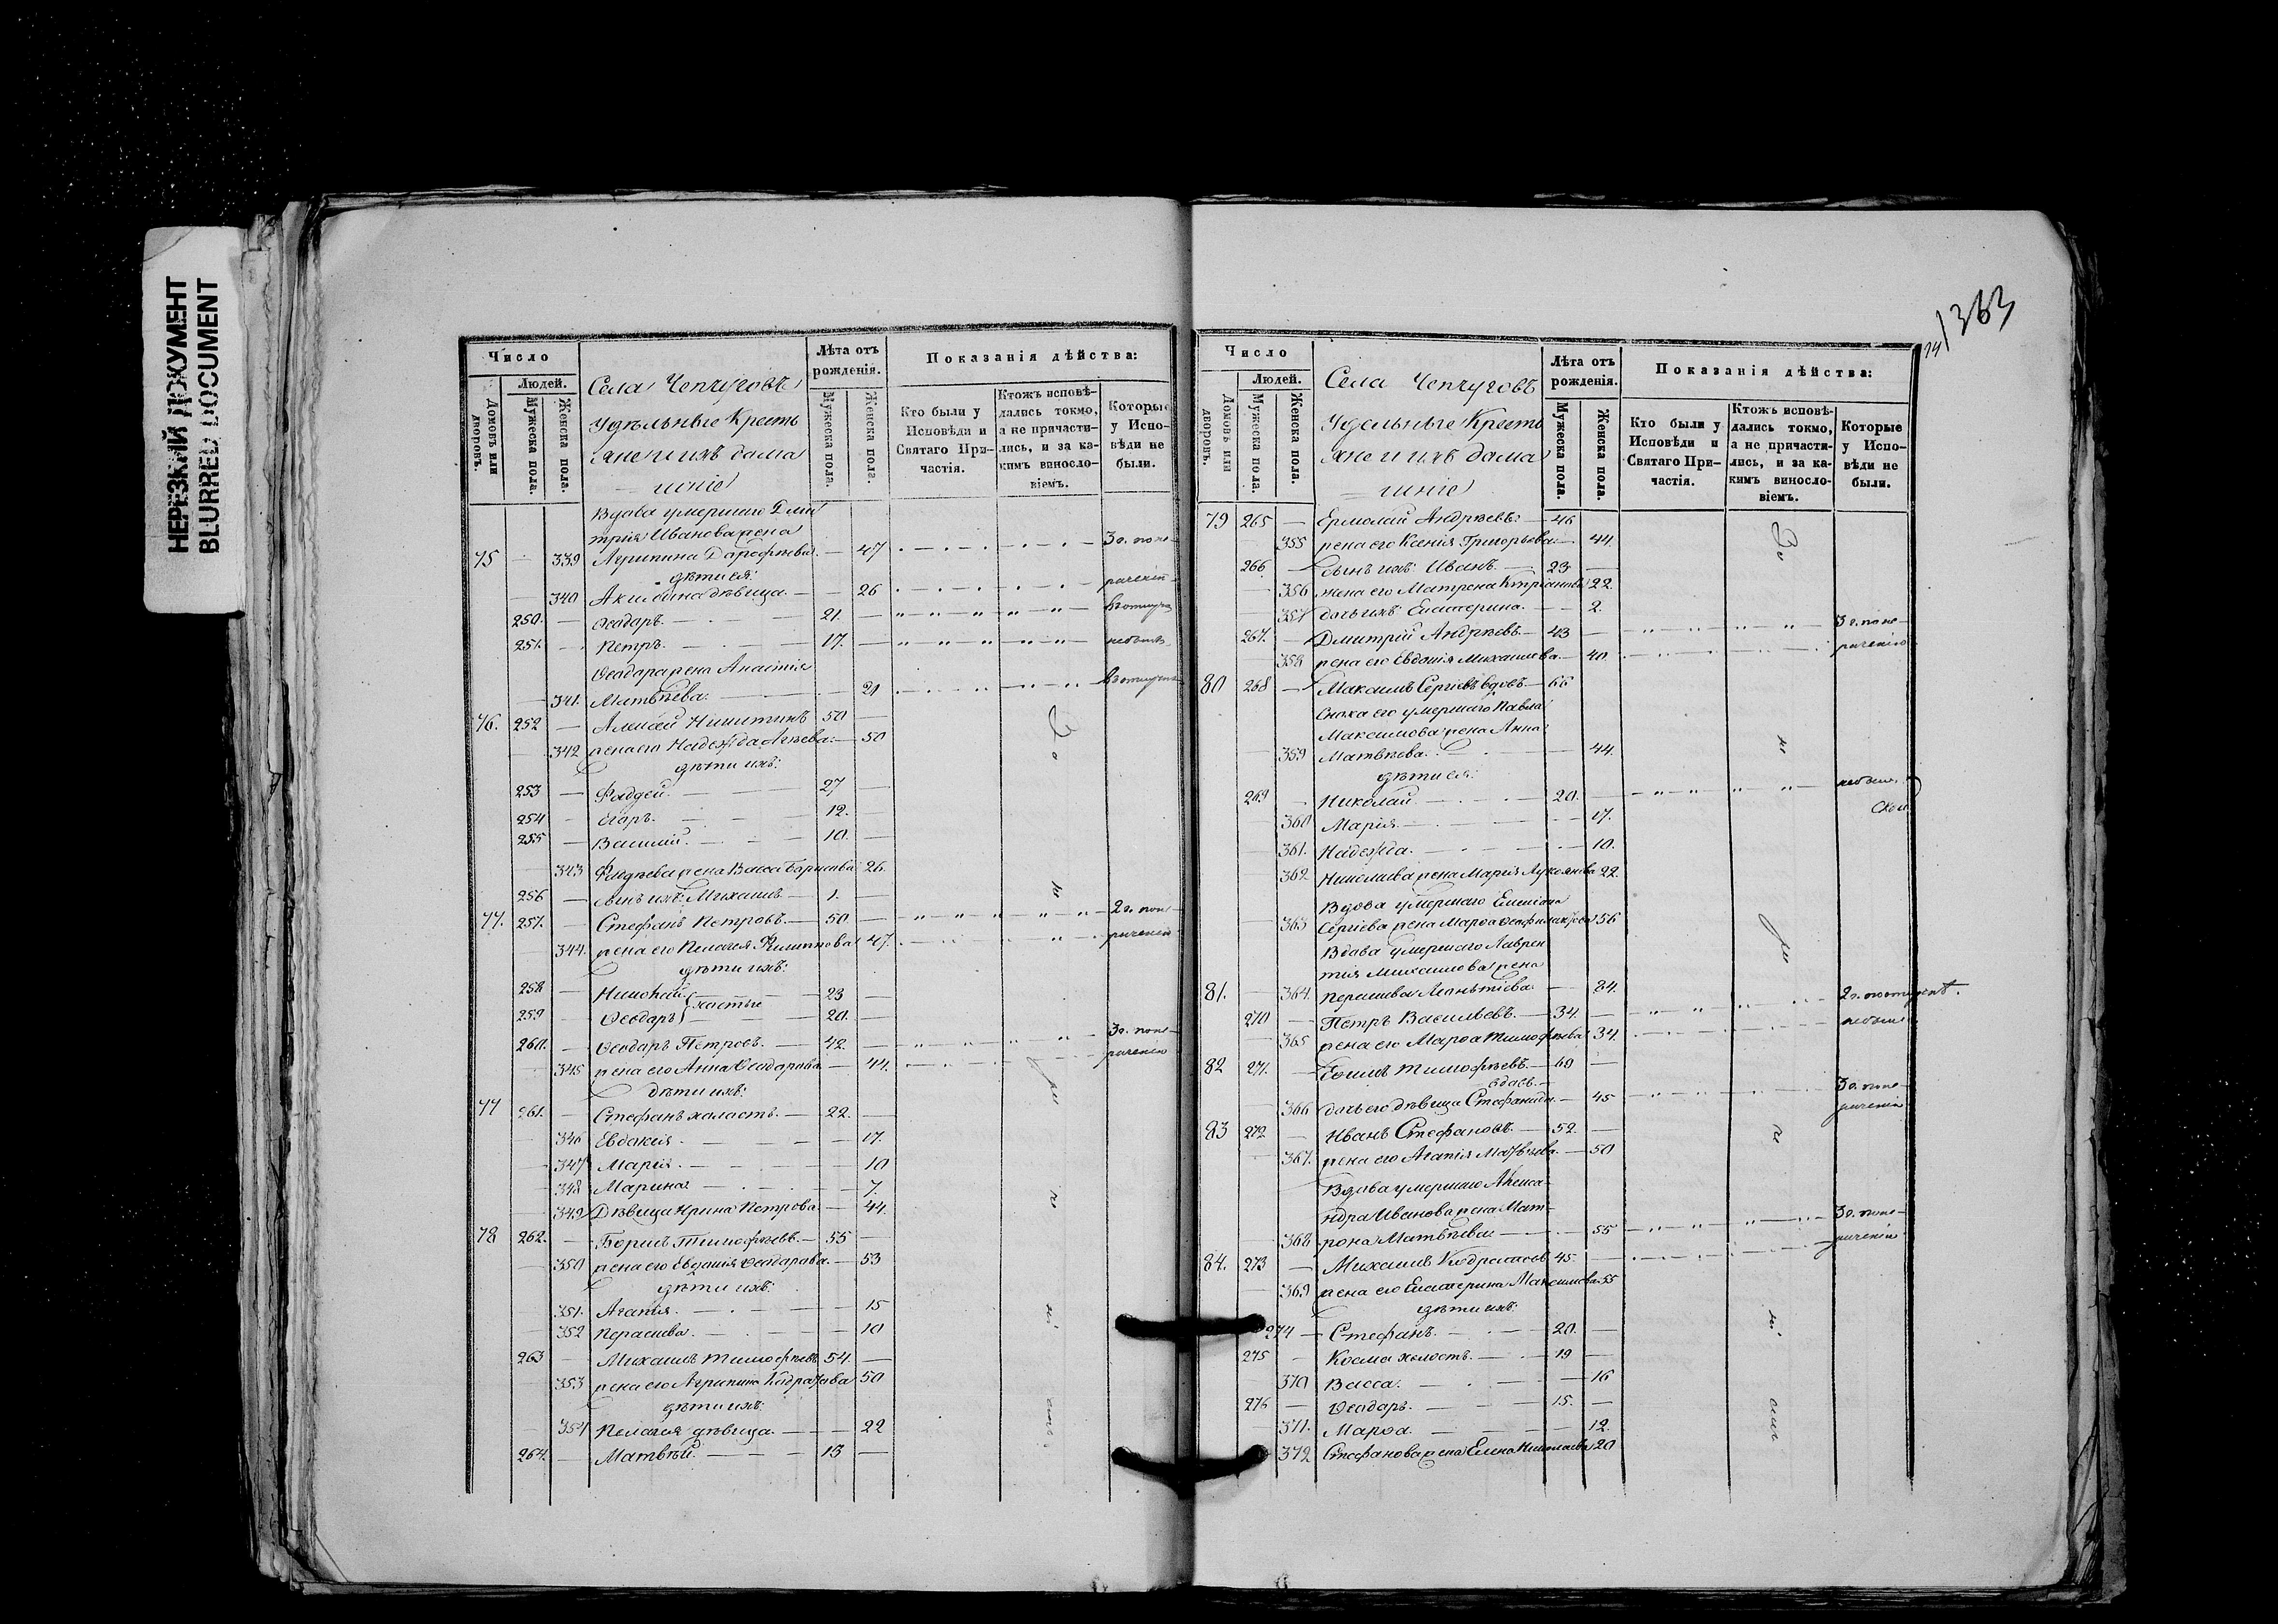 НЕРЕЗКИЙ ДОКУМЕНТ
BLURRED DOCUMENT
Число
Людей.
Домовъ или дворовъ.
Мужеска пола.
Женска пола.
Села Чепчуговъ
Удѣльные Кресть
яне и ихъ дома
шніе
Лѣта отъ рожденія.
Мужеска пола.
Женска пола.
Показанія дѣйства:
Кто были у Исповѣди и Святаго Причастія.
Ктожъ исповѣдались токмо, а не причастились, и за какимъ винословіемъ.
Которые у Исповѣди не были.
Вдова умершаго Дми
трія Иванова жена
75 339 Агрипина Дорофѣева 47 3 о. попе-
дѣти ея:
340 Акилина дѣвица 26 раченію
250. Ѳеодоръ. 21.
251. Петръ. 17.
Ѳеодора жена Анастасія
341. Матвѣева. 21
76. 252 Алексѣй Никитинъ 50
342 жена его Надежда Агѣева 50
дѣти ихъ:
253 Фаддей. 27
254 Егоръ. 12.
255 Василій. 10.
343 Фаддѣева жена Васса Борисова 26.
256 сынъ ихъ Михаилъ 1.
77. 257. Стефанъ Петровъ. 50. 2 о. попе-
344. жена его Пелагея Филиппова 47. раченію
дѣти ихъ:
258 23
холостые
259 Ѳеодоръ 20.
260. Ѳеодоръ Петровъ. 42. 3 о. попе-
345 жена его Анна Ѳеодорова 44. раченію
дѣти ихъ:
77 261. Стефанъ холостъ. 22.
346 Евдокия. 17.
347 Марія. 10
348 Марина 7.
349 Дѣвица Ирина Петрова 44.
78 262. Борисъ Тимофѣевъ. 55
350 жена его Евдокія Ѳеодорова. 53
дѣти ихъ:
351. Агапія. 15
352 Параскева. 10
263 Михаилъ Тимофѣевъ 54.
353 жена его Агрипина Кодратова 50
дѣти ихъ:
354 Пелагия дѣвица. 22
264. Матвѣй. 13
14/363
Число
Людей.
Домовъ или дворовъ.
Мужеска пола.
Женска пола.
Села Чепчуговъ
Удельные Кресть
яне и ихъ дома
шніе
Лѣта отъ рожденія.
Мужеска пола.
Женска пола.
Показанія дѣйства:
Кто были у Исповѣди и Святаго Причастія.
Ктожъ исповѣдались токмо, а не причастились, и за какимъ винословіемъ.
Которые у Исповѣди не были.
79 265 Ермолай Андрѣевъ 46
355 жена его Ксенія Григорьева 44.
266 сынъ ихъ Иванъ. 23
356 жена его Матрена 22.
357 дочь ихъ Екатерина. 2.
267. Дмитрій Андрѣевъ 43 3 о. попе-
358 жена его Евдокія Михаилова 40. раченію
80 268 Максимъ Сергіевъ вдовъ 66
Сноха его умершаго Павла
Максимова жена Анна
359 Матвѣева. 44.
дѣти ея:
269 Николай 20.
360 Марія 17.
361. Надежда. 10.
362 Николаева жена Марія Лукоянова 22.
Вдова умершаго
363 Сергіева жена Марѳа 56
Вдова умершаго Лаврен
тия Михаилова жена
81. 364. Параскева 84.
270 Петръ Васильевъ. 34.
365 жена его Марѳа Тимофѣева 34.
82 271. Ефимъ Тимофѣевъ. 60
вдовъ.
366 дочь его дѣвица Стефанида. 45 3 о. попе-
раченію
83 272 Иванъ Стефановъ. 52.
367. жена его Агапія Матвѣева. 50
Вдова умершаго Алекса-
ндра Иванова жена Мат-
368 рона Матвѣева 55 3 о. попе-
раченію
84. 273 Михаилъ Кодратовъ 45.
369 жена его Екатерина Максимова 55
дѣти ихъ:
274 Стефанъ. 20.
275 Косма холостъ. 19
370 Васса. 16
276 Ѳеодоръ. 15.
371. Марѳа. 12.
372 Стефанова жена Елена Николаева 20